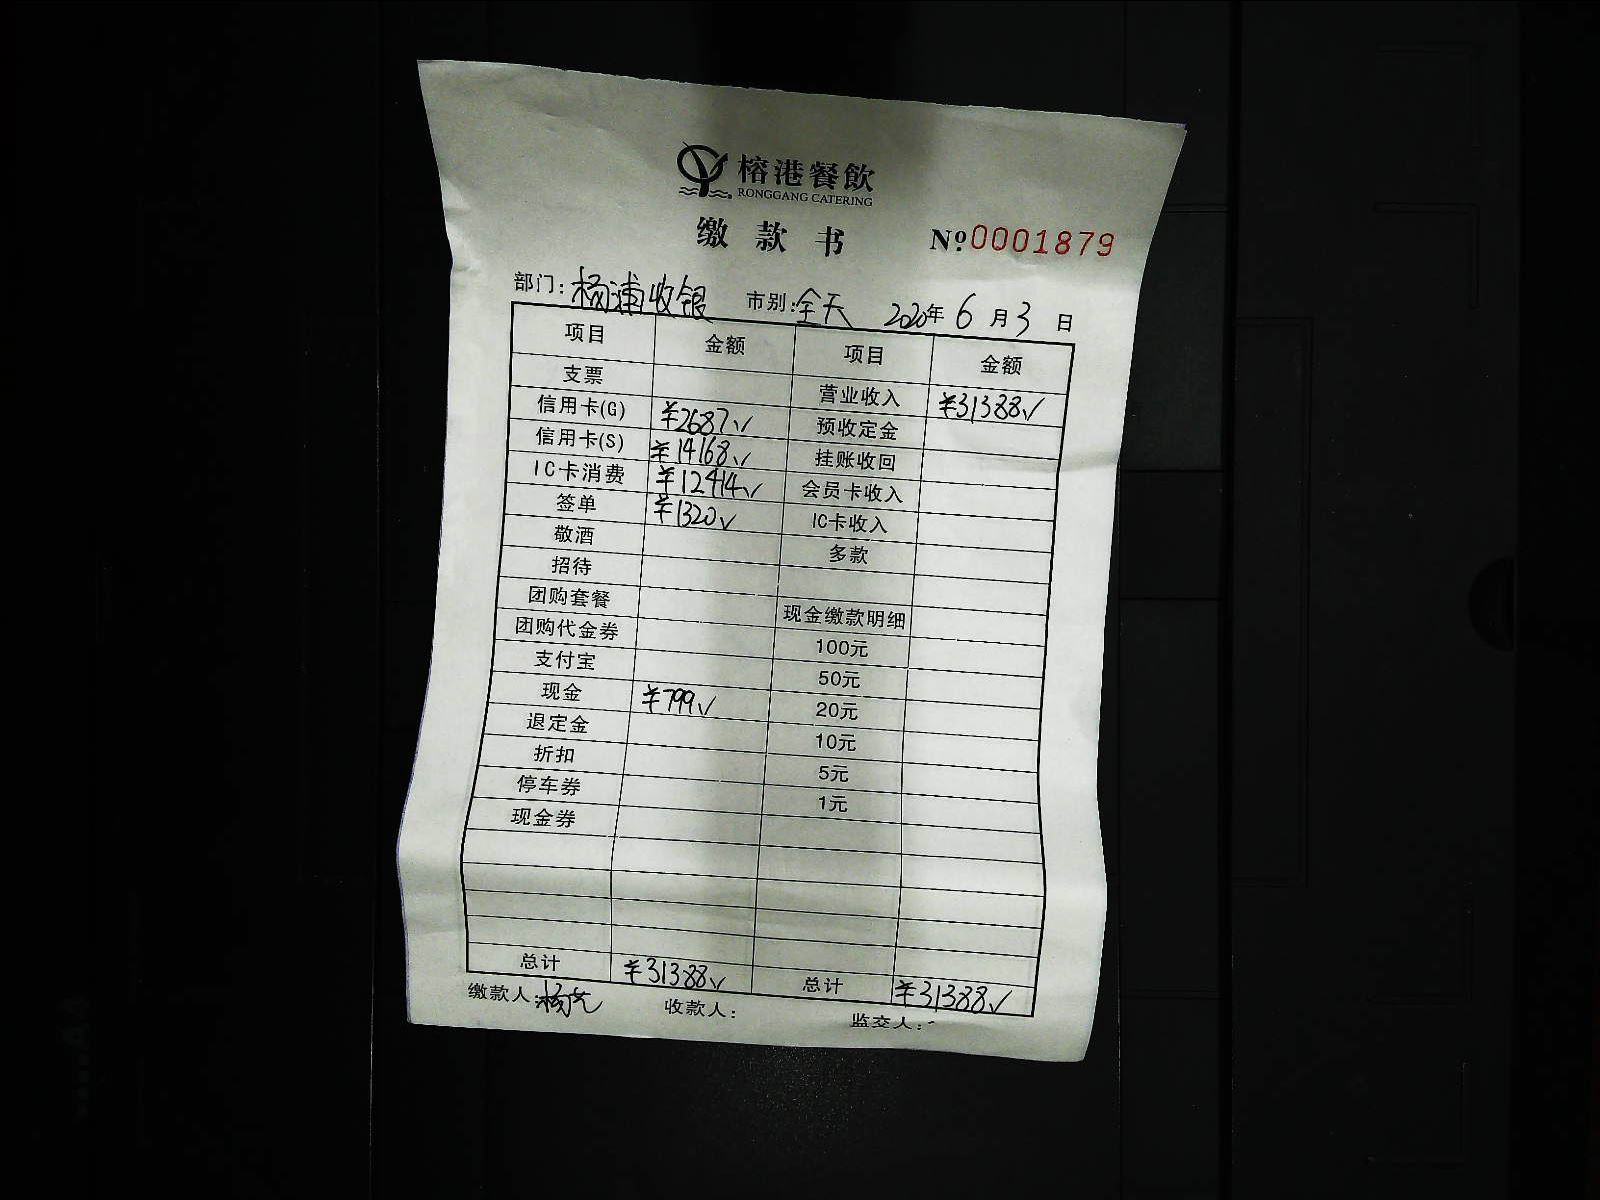 榕港餐飲
RONGGANG CATERING
缴款书 №0001879
部门：杨浦收银 市别：全天 2020年6月3日
项目 金额 项目 金额
支票 营业收入 ¥31388√
信用卡(G) ¥2687√ 预收定金
信用卡(S) ¥14168√ 挂账收回
IC卡消费 ¥12414√ 会员卡收入
签单 ¥1320√ IC卡收入
敬酒 多款
招待
团购套餐 现金缴款明细
团购代金券 100元
支付宝 50元
现金 ¥799√ 20元
退定金 10元
折扣 5元
停车券 1元
现金券
总计 ¥31388√ 总计 ¥31388√
缴款人：杨 收款人： 监交人：